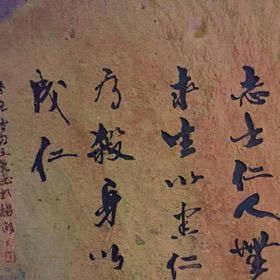 志士仁人無
求生以害仁
有殺身以
成仁